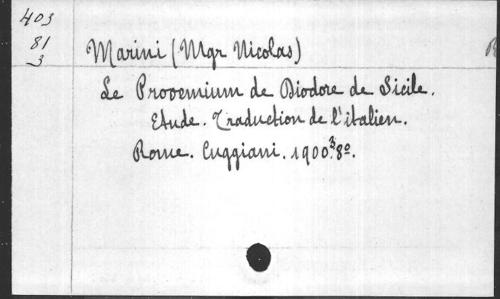 403
81
3
Marini (Mgr Nicolas)
Le Prooemium de Diodore de Sicile.
Etude. Traduction de l'italien.
Rome. Cuggiani. 1900. 8º.